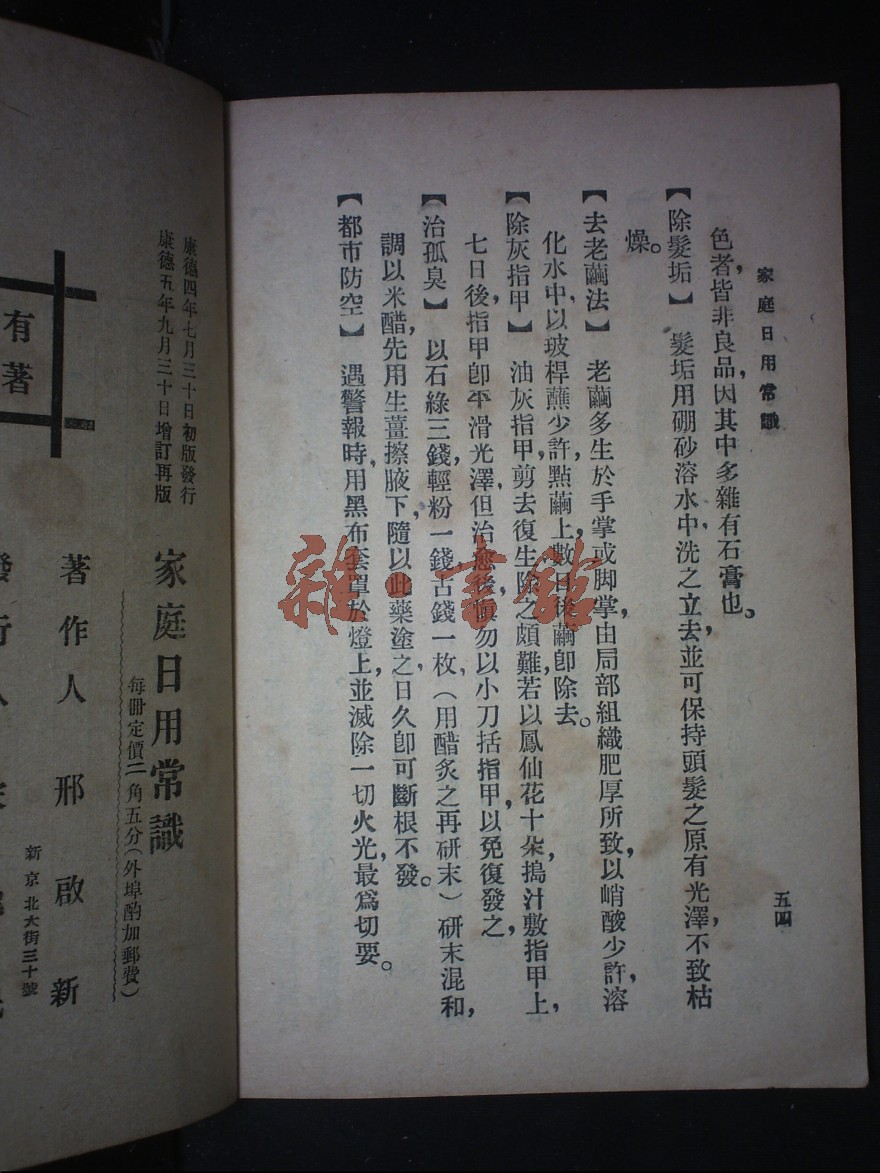 家庭日用常識
五四
色者，皆非良品，因其中多雜有石膏也。
【除髮垢】　髮垢用硼砂溶水中，洗之立去，並可保持頭髮之原有光澤，不致枯
燥。
【去老繭法】　老繭多生於手掌或脚掌，由局部組織肥厚所致，以峭酸少許，溶
化水中，以玻桿蘸少許，點繭上，數日後繭卽除去。
【除灰指甲】　油灰指甲，剪去復生，除之頗難，若以鳳仙花十朵，搗汁敷指甲上，
七日後，指甲卽平滑光澤，但治愈後，愼勿以小刀括指甲，以免復發之
【治孤臭】　以石綠三錢，輕粉一錢，古錢一枚（用醋炙之再研末）研末混和，
調以米醋，先用生薑擦腋下，隨以此藥塗之，日久卽可斷根不發。
【都市防空】　遇警報時，用黑布套罩於燈上，並滅除一切火光，最爲切要。
雜·書館
康德四年七月三十日初版發行
康德五年九月三十日增訂再版
家庭日用常識
每冊定價二角五分（外埠酌加郵費）
著作人　邢啟新
新京北大街三十號
發行人
有著